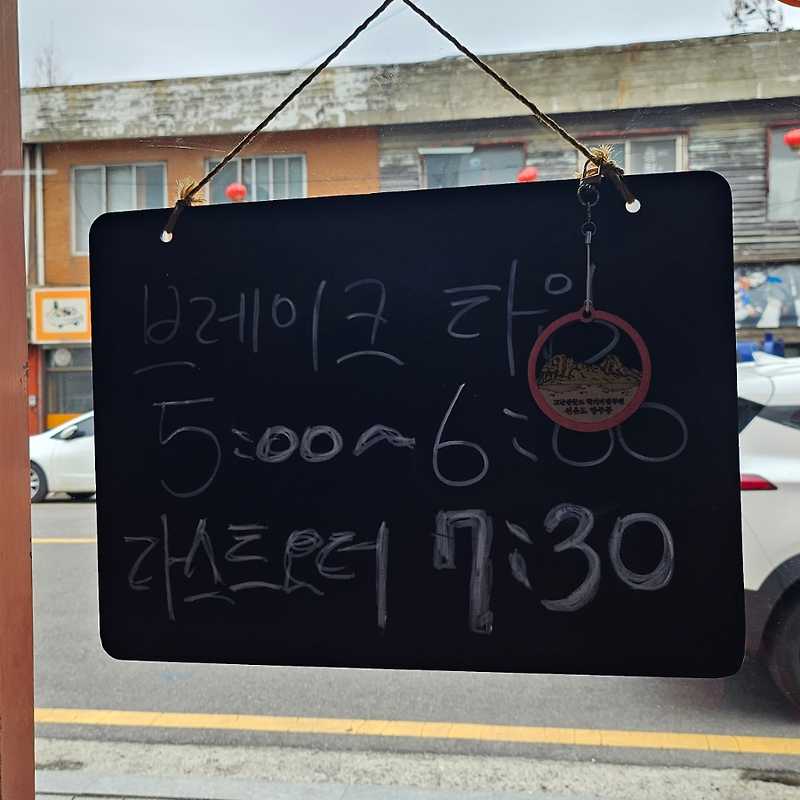 브레이크 타임
5:00~6:00
라스트오더 7:30